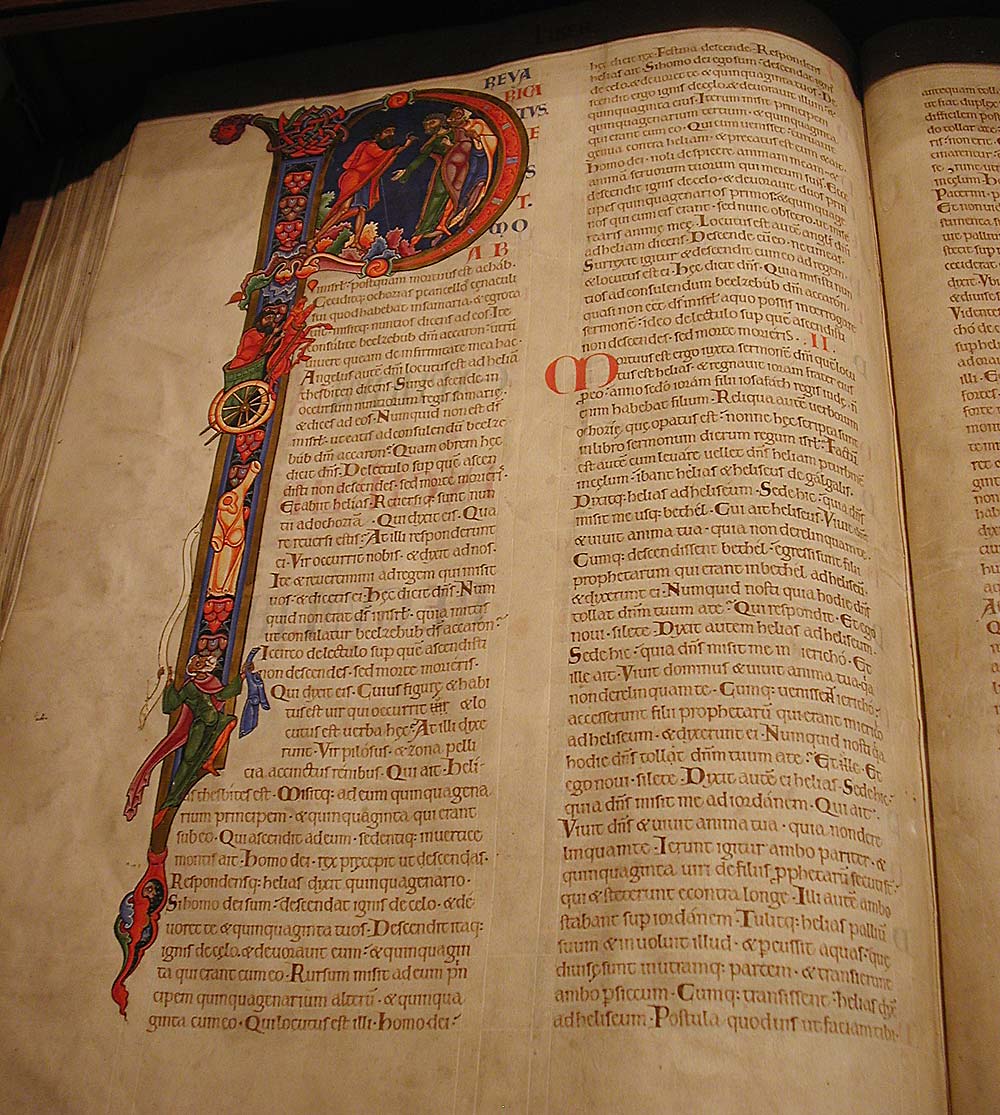 P
REVA
RICA
TUS
E
S
T.
MO
AB
inisrl· postquam mortuus est achab·
Ceciditq; ochozias p cancellos cenaculi
sui quod habebat in samaria· & egrota
uit· misitq; nuntios dicens ad eos· Ite
consulite beelzebub dm̄ accaron· utrū
uiuere queam de infirmitate mea hac·
Angelus autē dn̄i locutus est ad helia
thesbiten dicens· Surge ascende in
occursum nuntiorum regis samarię·
& dices ad eos· Numquid non est ds̄
in isrl· ut eatis ad consulendū beelze
bub dm̄ accaron· Quam obrem hęc
dicit dn̄s· De lectulo sup quē ascen
disti non descendes· sed morte morieris·
Et abiit helias· Reuersiq; sunt nun
tii ad ochoziā· Qui dixit eis· Qua
re reuersi estis· At illi responderunt
ei· Vir occurrit nobis· & dixit ad nos·
Ite & reuertimini ad regem qui misit
uos· & dicetis ei· Hęc dicit dn̄s· Num
quid non erat ds̄ in isrl· quia mittis
ut consulatur beelzebub ds̄ accaron·
Iccirco de lectulo sup quē ascendisti
non descendes· sed morte morieris·
Qui dixit eis· Cuius figurę & habi
tus est uir qui occurrit & lo
cutus est uerba hęc· At illi dixe
runt· Vir pilosus· & zona pelli
cia accinctus renibus· Qui ait· Heli
as thesbites est· Misitq; ad eum quinquagena
rium principem· & quinquaginta qui erant
sub eo· Qui ascendit ad eum· sedentiq; in uertice
montis ait· Homo dei· rex pręcepit ut descendas·
Respondensq; helias dixit quinquagenario·
Si homo dei sum· descendat ignis de celo· & de
uoret te & quinquaginta tuos· Descendit itaq;
ignis de cęlo· & deuorauit eum· & quinquagin
ta qui erant cum eo· Rursum misit ad eum prin
cipem quinquagenarium alterū· & quinqua
ginta cum eo· Qui locutus est illi· Homo dei·
hęc dicit rex· Festina descende· Respondens
helias ait· Si homo dei ego sum· descendat ignis
de celo· & deuoret te· & quinquaginta tuos· De
scendit ergo ignis de cęlo· & deuorauit illum· &
quinquaginta eius· Iterum misit principem
quinquagenarium tertium· & quinquaginta
qui erant cum eo· Qui cum uenisset· curuauit
genua contra heliam· & precatus est eum & ait·
Homo dei· noli despicere animam meam· &
animā seruorum tuorum qui mecum sunt· Ecce
descendit ignis de celo· & deuorauit duos prin
cipes quinquagenarios primos· & quinquage
nos qui cum eis erant· sed nunc obsecro ut mise
rearis animę meę· Locutus est autē angls dn̄i
ad heliam dicens· Descende cū eo· ne timeas·
Surrexit igitur & descendit cum eo ad regem·
& locutus est ei· Hęc dicit dn̄s· Quia misisti nun
tios ad consulendum beelzebūb dm̄ accaron·
quasi non eēt ds̄ in isrl· a quo possis interrogare
sermonē· ideo de lectulo sup quē ascendisti
non descendes· sed morte morieris·· II·
Mortuus est ergo iuxta sermonē dn̄i quē locu
tus est helias· & regnauit ioram frater eius
p eo· anno secdo ioram filii iosafath regis iudę· ñ
enim habebat filium· Reliqua autē uerborum
ochozię que opatus est· nonne hęc scripta sunt
in libro sermonum dierum regum isrl· Factū
est autē cum leuare uellet dn̄s heliam p turbinē
in cęlum· ibant helias & heliseus de galgalis·
Dixitq; helias ad heliseum· Sede hic· quia dn̄s
misit me usq; bethel· Cui ait heliseus· Viuit dn̄s
& uiuit anima tua· quia non derelinquam te·
Cumq; descendissent bethel· egressi sunt filii
prophetarum qui erant in bethel ad heliseū·
& dixerunt ei· Numquid nosti quia hodie dn̄s
tollat dn̄m tuum a te· Qui respondit· Et ego
noui· silete· Dixit autem helias ad heliseum·
Sede hic· quia dn̄s misit me in iericho· Et
ille ait· Viuit dominus & uiuit anima tua· qa
non derelinquam te· Cumq; uenissent iericho·
accesserunt filii prophetarū qui erant in iericho
ad heliseum· & dixerunt ei· Numquid nosti qa
hodie dn̄s tollat dn̄m tuum a te· Et ille· Et
ego noui· silete· Dixit autē ei helias· Sede hic·
quia dn̄s misit me ad iordanem· Qui ait·
Viuit dn̄s & uiuit anima tua· quia non dere
linquam te· Ierunt igitur ambo pariter· &
quinquaginta uiri de filiis prophetarū secuti st·
qui & steterunt e contra longe· Illi autē ambo
stabant sup iordanem· Tulitq; helias palliū
suum & inuoluit illud· & pcussit aquas· que
diuisę sunt in utramq; partem· & transierunt
ambo p siccum· Cumq; transissent· helias dix
ad heliseum· Postula quod uis ut faciam tibi·